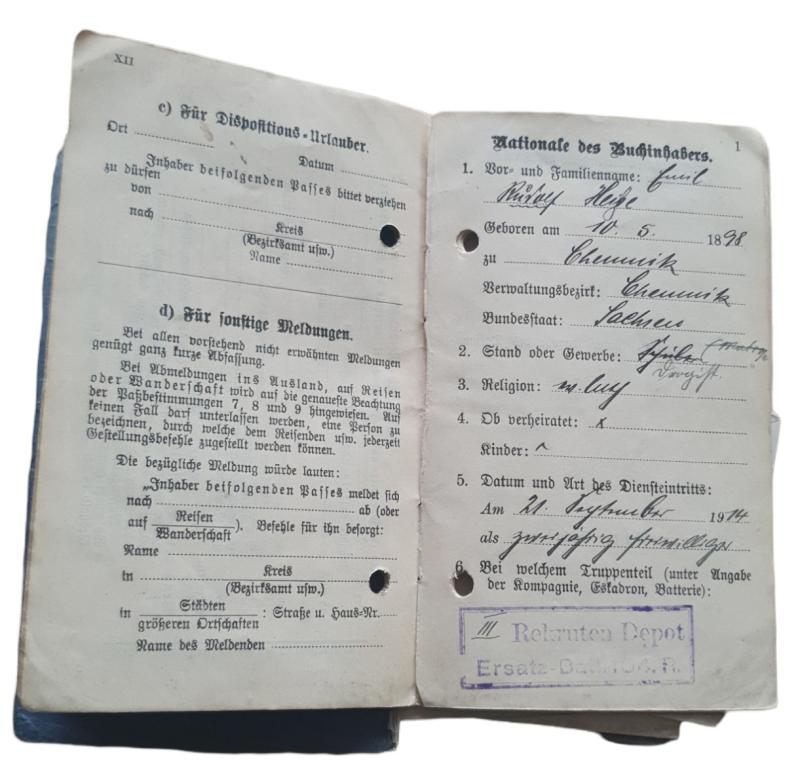 XII
c) Für Dispositions-Urlauber.
Ort
Datum
Inhaber beifolgenden Passes bittet verziehen
zu dürfen
von
nach
Kreis
(Bezirksamt usw.)
Name
d) Für sonstige Meldungen.
Bei allen vorstehend nicht erwähnten Meldungen
genügt ganz kurze Abfassung.
Bei Abmeldungen ins Ausland, auf Reisen
oder Wanderschaft wird auf die genaueste Beachtung
der Paßbestimmungen 7, 8 und 9 hingewiesen. Auf
keinen Fall darf unterlassen werden, eine Person zu
bezeichnen, durch welche dem Reisenden usw. jederzeit
Gestellungsbefehle zugestellt werden können.
Die bezügliche Meldung würde lauten:
„Inhaber beifolgenden Passes meldet sich
nach ab (oder
auf Reisen
Wanderschaft). Befehle für ihn besorgt:
Name
in Kreis
(Bezirksamt usw.)
in Städten : Straße u. Haus-Nr.
größeren Ortschaften
Name des Meldenden
1
Nationale des Buchinhabers.
1. Vor- und Familienname: Emil
Rudolf
Geboren am 10. 5. 1898
zu Chemnitz
Verwaltungsbezirk: Chemnitz
Bundesstaat: Sachsen
2. Stand oder Gewerbe: Schüler
3. Religion: ev. luth
4. Ob verheiratet: x
Kinder:
5. Datum und Art des Diensteintritts:
Am 21. September 1914
als zweijährig freiwilliger
6. Bei welchem Truppenteil (unter Angabe
der Kompagnie, Eskadron, Batterie):
III Rekruten Depot
Ersatz-Batl.